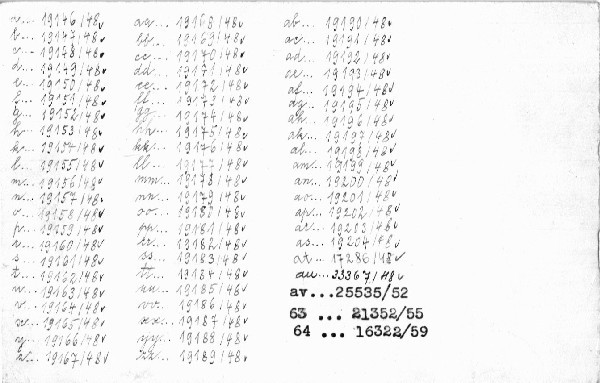 a... 19146/48✓
b... 19147/48✓
c... 19148/48✓
d... 19149/48✓
e... 19150/48✓
f... 19151/48✓
g... 19152/48✓
h... 19153/48✓
k... 19154/48✓
l... 19155/48✓
m... 19156/48✓
n... 19157/48✓
o... 19158/48✓
p... 19159/48✓
r... 19160/48✓
s... 19161/48✓
t... 19162/48✓
u... 19163/48✓
v... 19164/48✓
x... 19165/48✓
y... 19166/48✓
z... 19167/48✓
aa... 19168/48✓
bb... 19169/48✓
cc... 19170/48✓
dd... 19171/48✓
ee... 19172/48✓
ff... 19173/48✓
gg... 19174/48✓
hh... 19175/48✓
kk... 19176/48✓
ll... 19177/48✓
mm... 19178/48✓
nn... 19179/48✓
oo... 19180/48✓
pp... 19181/48✓
rr... 19182/48✓
ss... 19183/48✓
tt... 19184/48✓
uu... 19185/48✓
vv... 19186/48✓
xx... 19187/48✓
yy... 19188/48✓
zz... 19189/48✓
ab... 19190/48✓
ac... 19191/48✓
ad... 19192/48✓
ae... 19193/48✓
af... 19194/48✓
ag... 19195/48✓
ah... 19196/48✓
ak... 19197/48✓
al... 19198/48✓
am... 19199/48✓
an... 19200/48✓
ao... 19201/48✓
ap... 19202/48✓
ar... 19203/48✓
as... 19204/48✓
at... 17286/48✓
au... 23367/48✓
av...25535/52
63 ... 21352/55
64 ... 16322/59